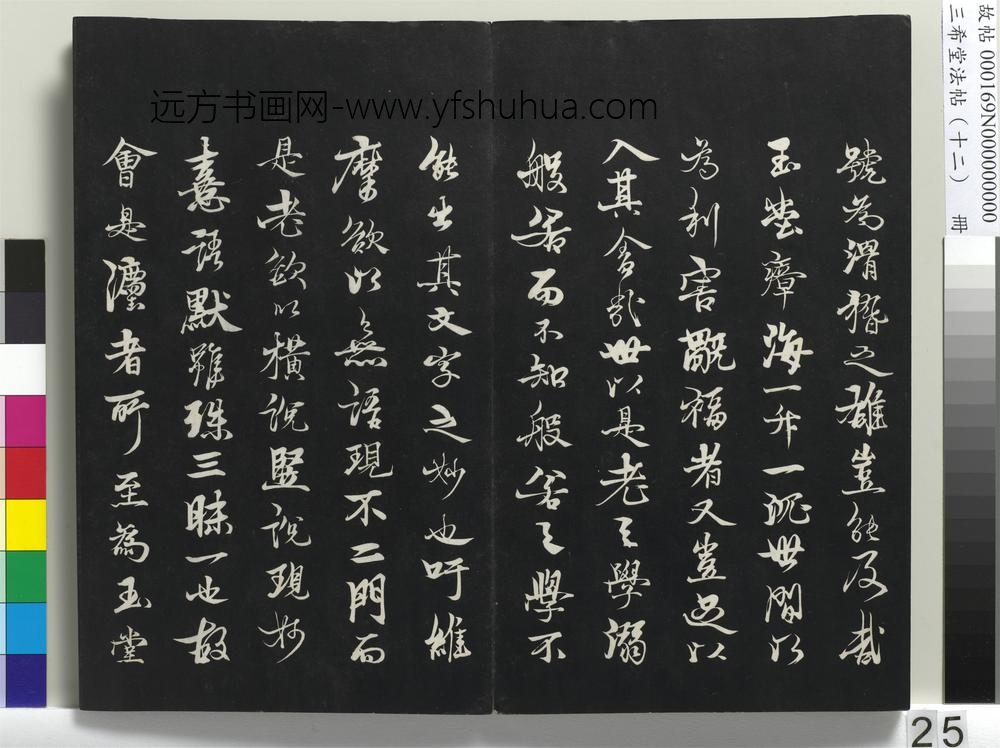 远方书画网-www.yfshuhua.com
號為滑稽之雄豈能及哉
玉堂瘴海一升一沉世間以
為利害旤福者又豈足以
入其舍哉世以是老之學溺
般若而不知般若之學不
能出其文字之妙也吁維
摩欲以無語現不二門而
是老欲以橫說豎說現妙
憙語默雖殊三昧一也故
會是灋者所至為玉堂
故帖 000169N000000000
三希堂法帖（十二） 冊
25